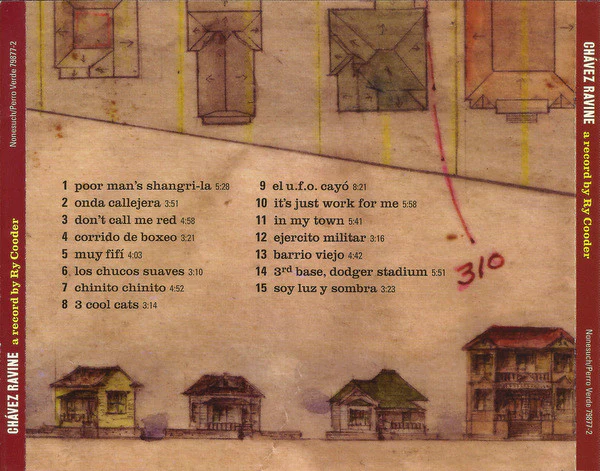 Nonesuch/Perro Verde 79877-2
CHÁVEZ RAVINE a record by Ry Cooder
1 poor man's shangri-la 5:28
2 onda callejera 3:51
3 don't call me red 4:58
4 corrido de boxeo 3:21
5 muy fifí 4:03
6 los chucos suaves 3:10
7 chinito chinito 4:52
8 3 cool cats 3:14
9 el u.f.o. cayó 8:21
10 it's just work for me 5:58
11 in my town 5:41
12 ejercito militar 3:16
13 barrio viejo 4:42
14 3rd base, dodger stadium 5:51
15 soy luz y sombra 3:23
310
CHÁVEZ RAVINE a record by Ry Cooder
Nonesuch/Perro Verde 79877-2